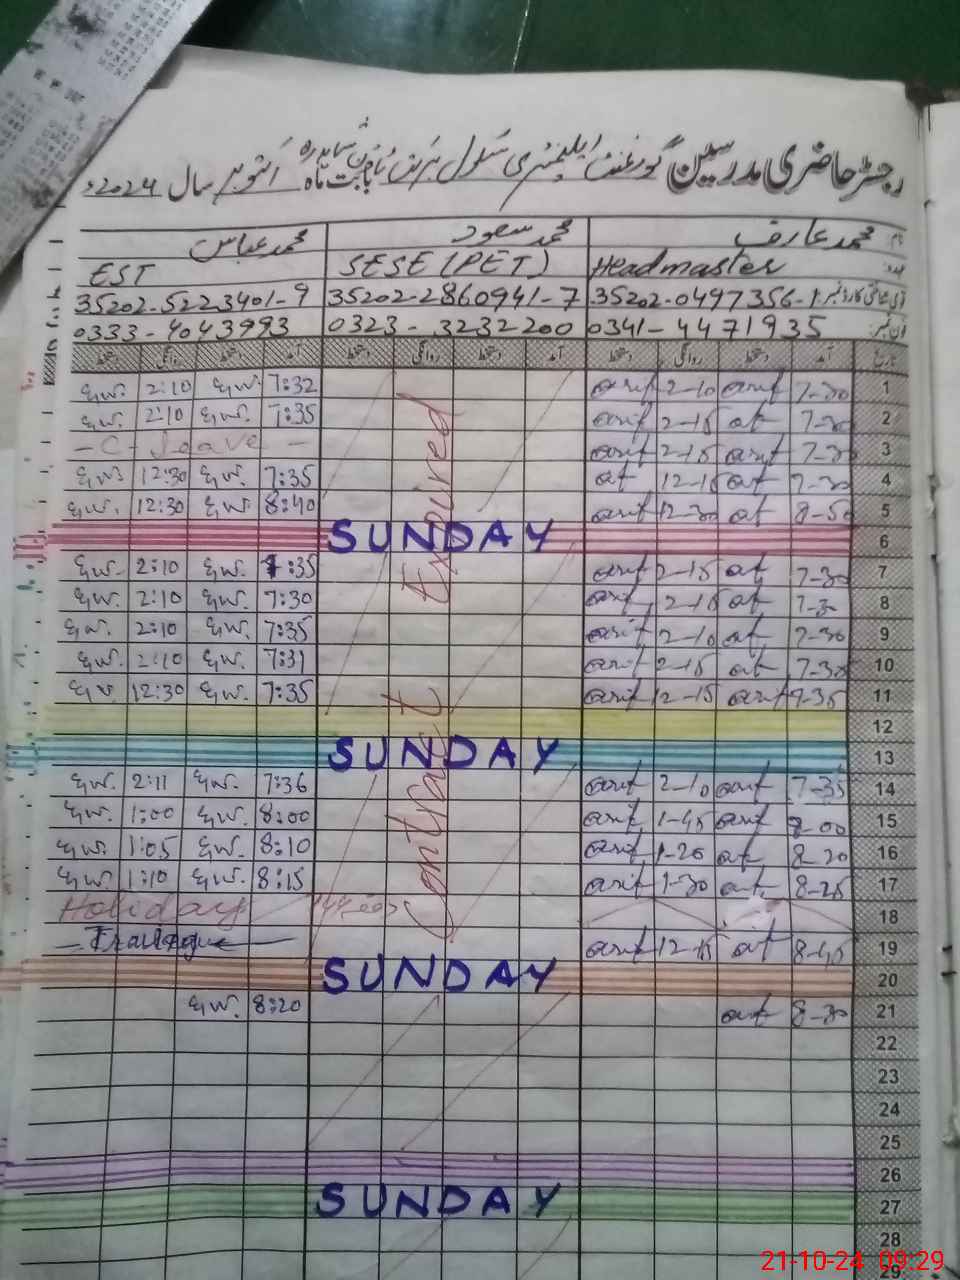 رجسٹر حاضری مدرسین گورنمنٹ ایلیمنٹری سکول بابت ماہ اکتوبر سال 2024ء
نام: محمد عارف محمد سعود محمد عباس
عہدہ: Headmaster SESE (PET) EST
35202-0497356-1 35202-2860941-7 35202-5223401-9
فون نمبر: 0341-4471935 0323-3232200 0333-4043993
تاریخ آمد دستخط روانگی دستخط آمد دستخط روانگی دستخط آمد دستخط روانگی دستخط
1 7-30 arif 2-10 arif 7:32 2:10
2 7-30 at 2-15 arif 7:35 2:10
3 7-30 arif 2-15 arif - C-leave -
4 7-30 at 12-15 at 7:35 12:30
5 8-50 at 12-30 arif 8:40 12:30
6 SUNDAY
7 7-30 at 2-15 arif 7:35 2:10
8 7-30 at 2-15 arif 7:30 2:10
9 7-30 at 2-10 arif 7:35 2:10
10 7-30 at 2-15 arif 7:31 2:10
11 7-35 arif 12-15 arif 7:35 12:30
12
13 SUNDAY
14 7-35 arif 2-10 arif 7:36 2:11
15 8-00 arif 1-45 arif 8:00 1:00
16 8-20 at 1-20 arif 8:10 1:05
17 8-25 at 1-30 arif 8:15 1:10
18 Holiday
19 8-45 at 12-15 arif
20 SUNDAY
21 8-30 arif 8:20
22
23
24
25
26
27 SUNDAY
28
29
Contract Expired
21-10-24 09:29